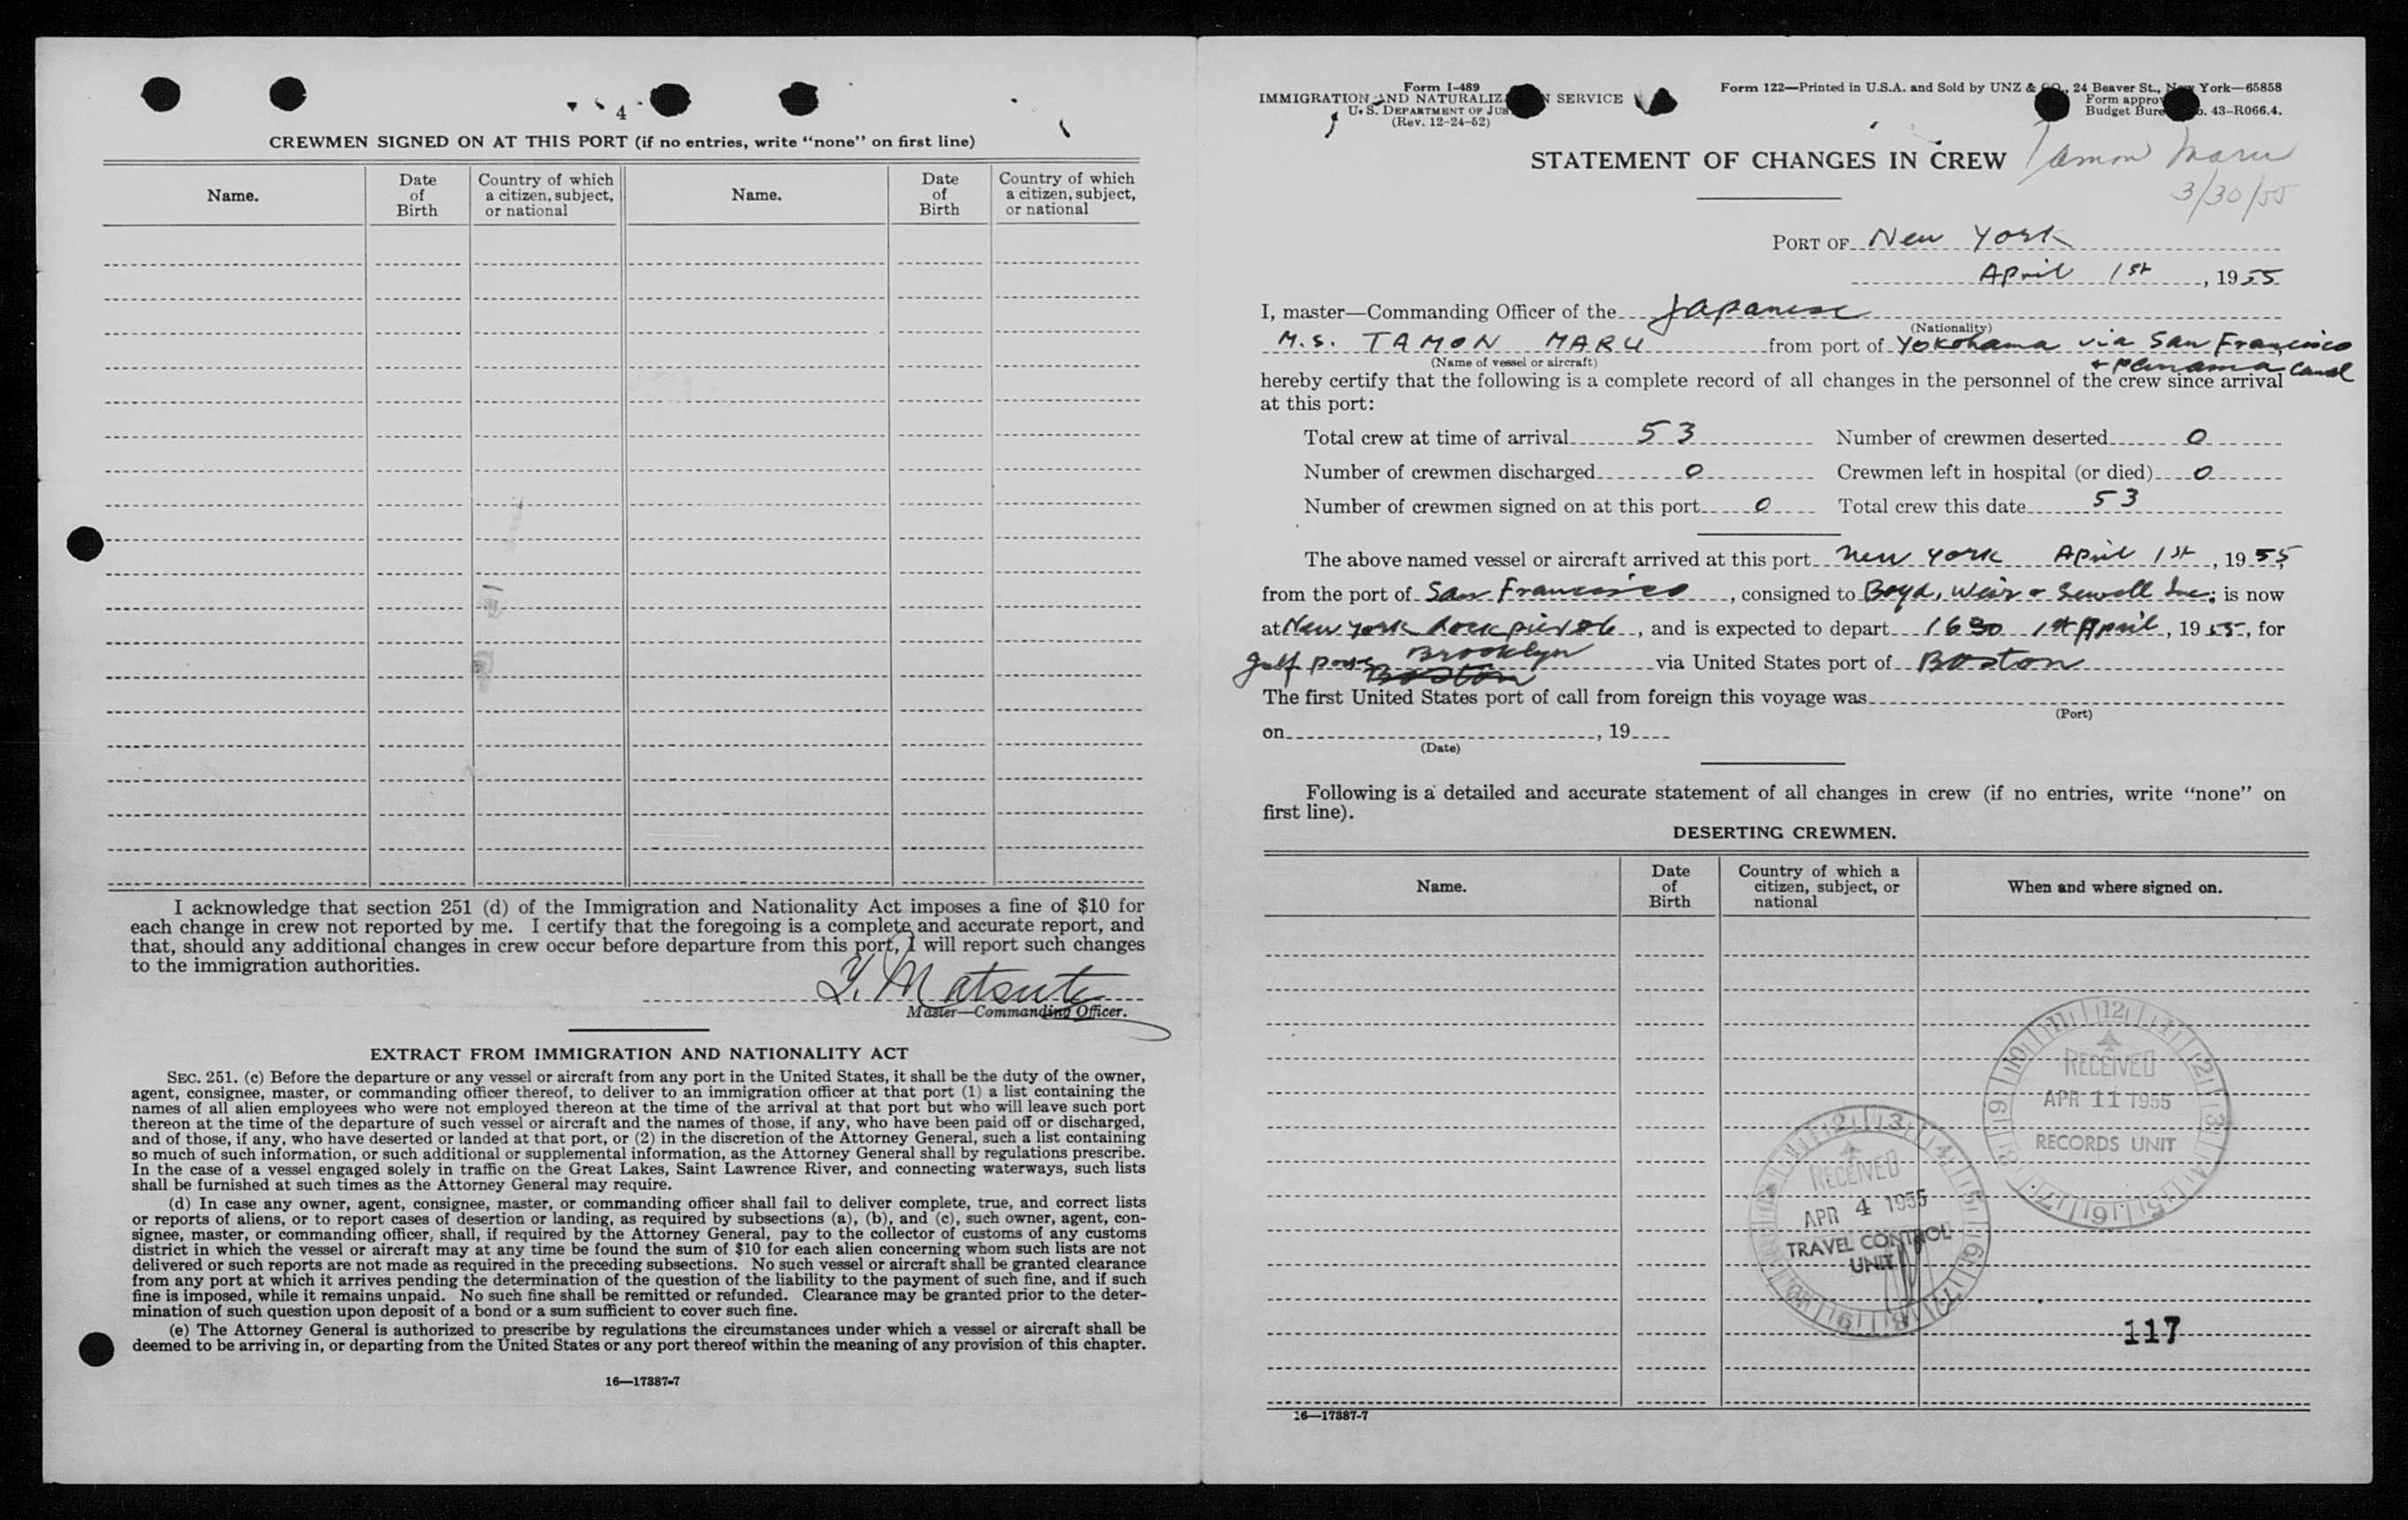 4
CREWMEN SIGNED ON AT THIS PORT (if no entries, write “none” on first line)
Name.
Date
of
Birth
Country of which
a citizen, subject,
or national
Name.
Date
of
Birth
Country of which
a citizen, subject,
or national
I acknowledge that section 251 (d) of the Immigration and Nationality Act imposes a fine of $10 for
each change in crew not reported by me. I certify that the foregoing is a complete and accurate report, and
that, should any additional changes in crew occur before departure from this port, I will report such changes
to the immigration authorities.
Y. Matsute
Master—Commanding Officer.
EXTRACT FROM IMMIGRATION AND NATIONALITY ACT
SEC. 251. (c) Before the departure or any vessel or aircraft from any port in the United States, it shall be the duty of the owner,
agent, consignee, master, or commanding officer thereof, to deliver to an immigration officer at that port (1) a list containing the
names of all alien employees who were not employed thereon at the time of the arrival at that port but who will leave such port
thereon at the time of the departure of such vessel or aircraft and the names of those, if any, who have been paid off or discharged,
and of those, if any, who have deserted or landed at that port, or (2) in the discretion of the Attorney General, such a list containing
so much of such information, or such additional or supplemental information, as the Attorney General shall by regulations prescribe.
In the case of a vessel engaged solely in traffic on the Great Lakes, Saint Lawrence River, and connecting waterways, such lists
shall be furnished at such times as the Attorney General may require.
(d) In case any owner, agent, consignee, master, or commanding officer shall fail to deliver complete, true, and correct lists
or reports of aliens, or to report cases of desertion or landing, as required by subsections (a), (b), and (c), such owner, agent, con-
signee, master, or commanding officer, shall, if required by the Attorney General, pay to the collector of customs of any customs
district in which the vessel or aircraft may at any time be found the sum of $10 for each alien concerning whom such lists are not
delivered or such reports are not made as required in the preceding subsections. No such vessel or aircraft shall be granted clearance
from any port at which it arrives pending the determination of the question of the liability to the payment of such fine, and if such
fine is imposed, while it remains unpaid. No such fine shall be remitted or refunded. Clearance may be granted prior to the deter-
mination of such question upon deposit of a bond or a sum sufficient to cover such fine.
(e) The Attorney General is authorized to prescribe by regulations the circumstances under which a vessel or aircraft shall be
deemed to be arriving in, or departing from the United States or any port thereof within the meaning of any provision of this chapter.
16—17387-7
Form I-489
IMMIGRATION AND NATURALIZ N SERVICE
U. S. DEPARTMENT OF JUS
(Rev. 12-24-52)
Form 122—Printed in U.S.A. and Sold by UNZ & CO., 24 Beaver St., New York—65858
Form approv
Budget Bure o. 43-R066.4.
STATEMENT OF CHANGES IN CREW Tamon Maru
3/30/55
PORT OF New York
April 1st, 1955
I, master—Commanding Officer of the Japanese
(Nationality)
M.S. TAMON MARU from port of Yokohama via San Francisco
+ Panama Canal
(Name of vessel or aircraft)
hereby certify that the following is a complete record of all changes in the personnel of the crew since arrival
at this port:
Total crew at time of arrival 53 Number of crewmen deserted 0
Number of crewmen discharged 0 Crewmen left in hospital (or died) 0
Number of crewmen signed on at this port 0 Total crew this date 53
The above named vessel or aircraft arrived at this port New York April 1st, 1955
from the port of San Francisco, consigned to Boyd, Weir & Sewell Inc; is now
at New York dock pier, and is expected to depart 1st April, 1955, for
gulf ports Brooklyn Boston via United States port of Boston
The first United States port of call from foreign this voyage was
(Port)
on , 19
(Date)
Following is a detailed and accurate statement of all changes in crew (if no entries, write “none” on
first line).
DESERTING CREWMEN.
Name.
Date
of
Birth
Country of which a
citizen, subject, or
national
When and where signed on.
RECEIVED
APR 11 1955
RECORDS UNIT
RECEIVED
APR 4 1955
TRAVEL CONTROL
UNIT
117
16—17387-7